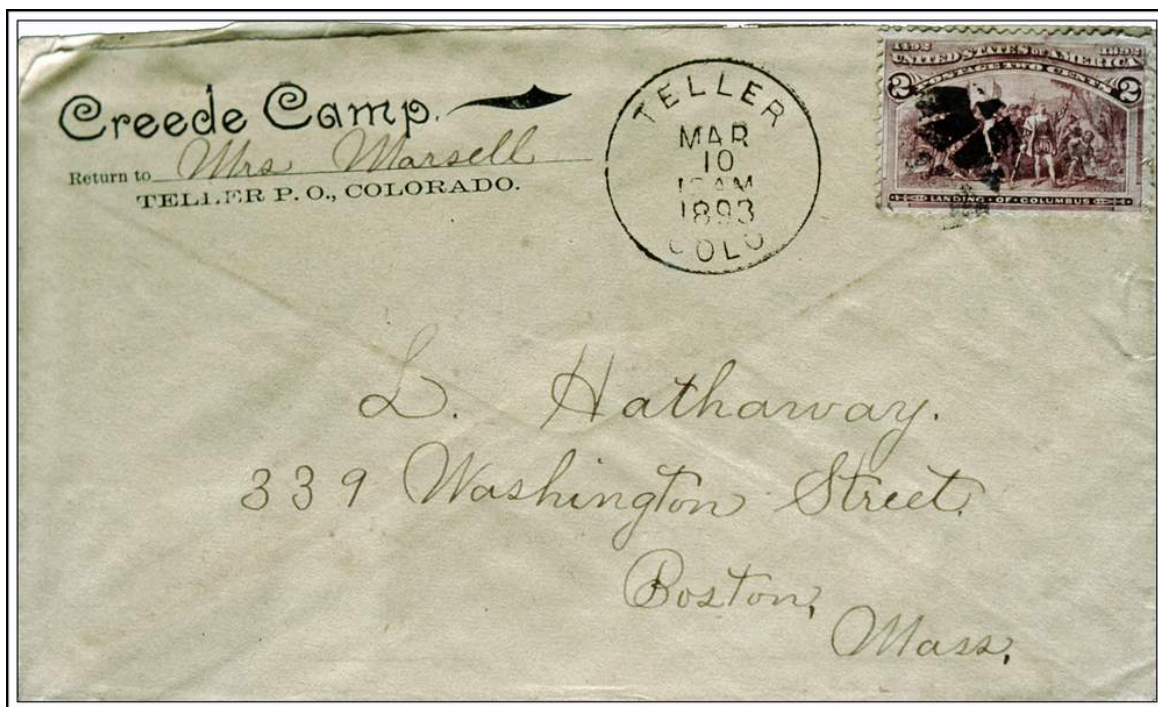 Creede Camp.
Return to Mrs Marsell
TELLER P. O., COLORADO.
TELLER
MAR
10
AM
1893
COLO
1492 1892
UNITED STATES OF AMERICA
POSTAGE TWO CENTS
2 2
LANDING OF COLUMBUS
L. Hathaway.
339 Washington Street.
Boston,
Mass.